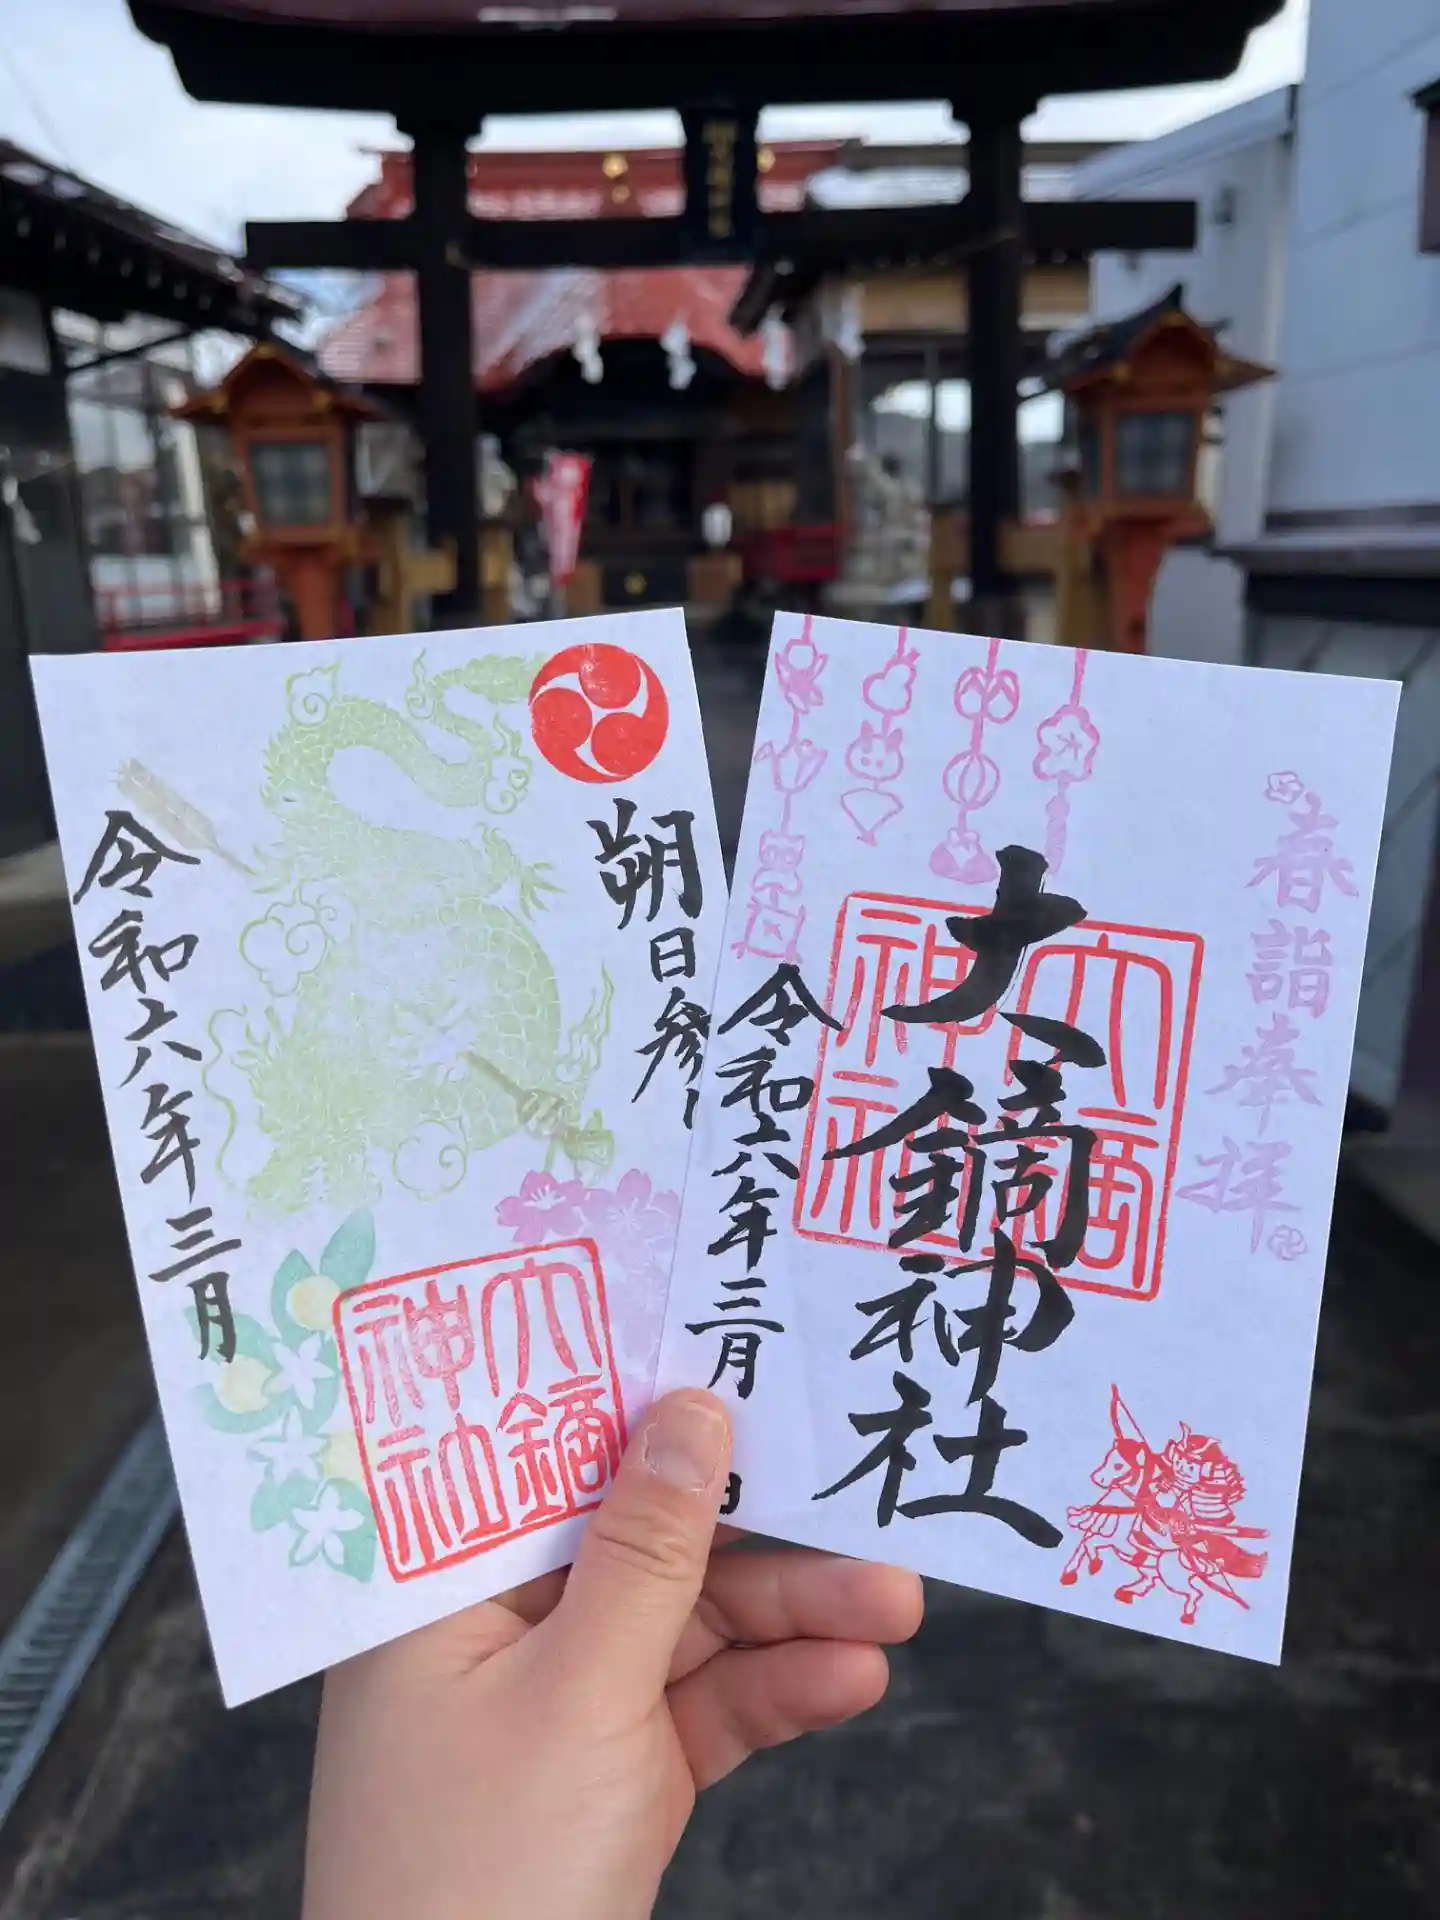 朔日参り
令和六年三月
大鏑神社
春詣奉拝
大鏑神社
令和六年三月
日
大鏑神社